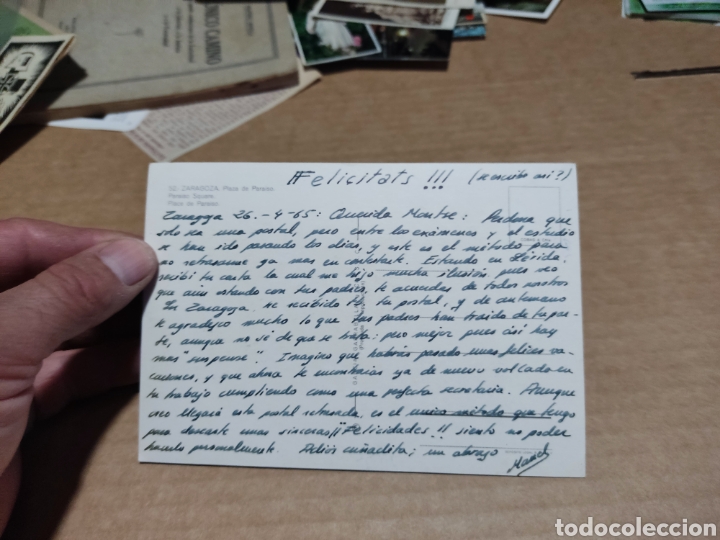 CAMINO
¡Felicitats!!! (se escribe así?)
50. ZARAGOZA. Plaza de Paraiso.
Paraiso Square.
Place de Paraiso.
Zaragoza 26.-4-65: Querida Montse: Perdona que
sólo sea una postal, pero entre los exámenes y el estudio
se han ido pasando los días, y este es el método para
no retrasarme ya mas en contestarte. Estando en Lérida
recibí tu carta la cual me hizo mucha ilusión pues veo
que aún estando con tus padres, te acuerdas de todos nosotros
En Zaragoza he recibido tb. tu postal, y de antemano
te agradezco mucho lo que tus padres han traido de tu par-
te, aunque no sé de que se trata; pero mejor pues así hay
mas "suspense". Imagino que habrás pasado unas felices va-
caciones, y que ahora te encontrarás ya de nuevo volcada en
tu trabajo cumpliendo como una perfecta secretaria. Aunque
creo llegará esta postal retrasada, es el único método que tengo
para desearte unas sinceras ¡¡Felicidades!! siento no poder
hacerlo personalmente. Adiós cuñadita; un abrazo
todocoleccion
todocoleccion.net